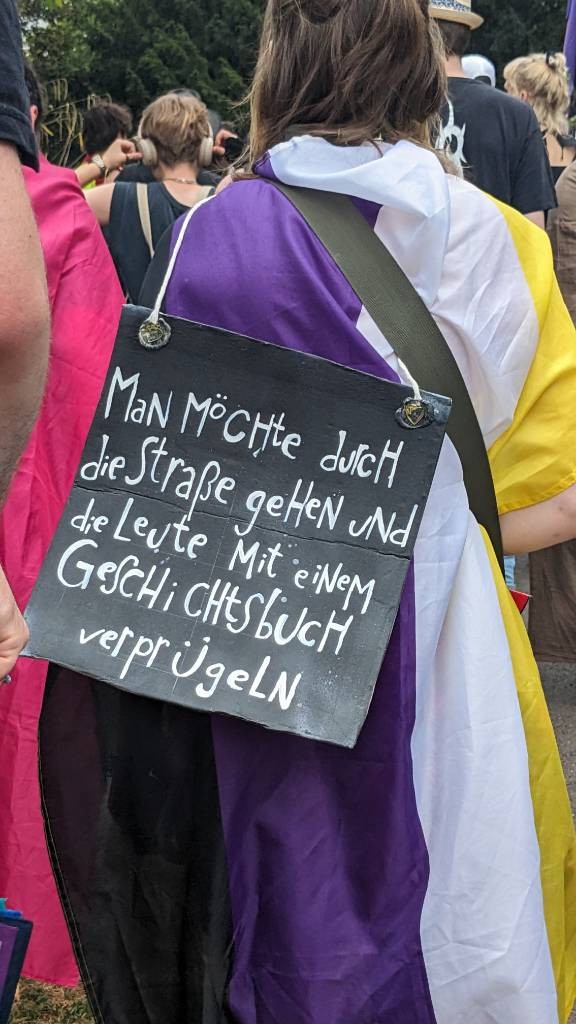 Man möchte durch
die Straße gehen und
die Leute mit einem
Geschichtsbuch
verprügeln